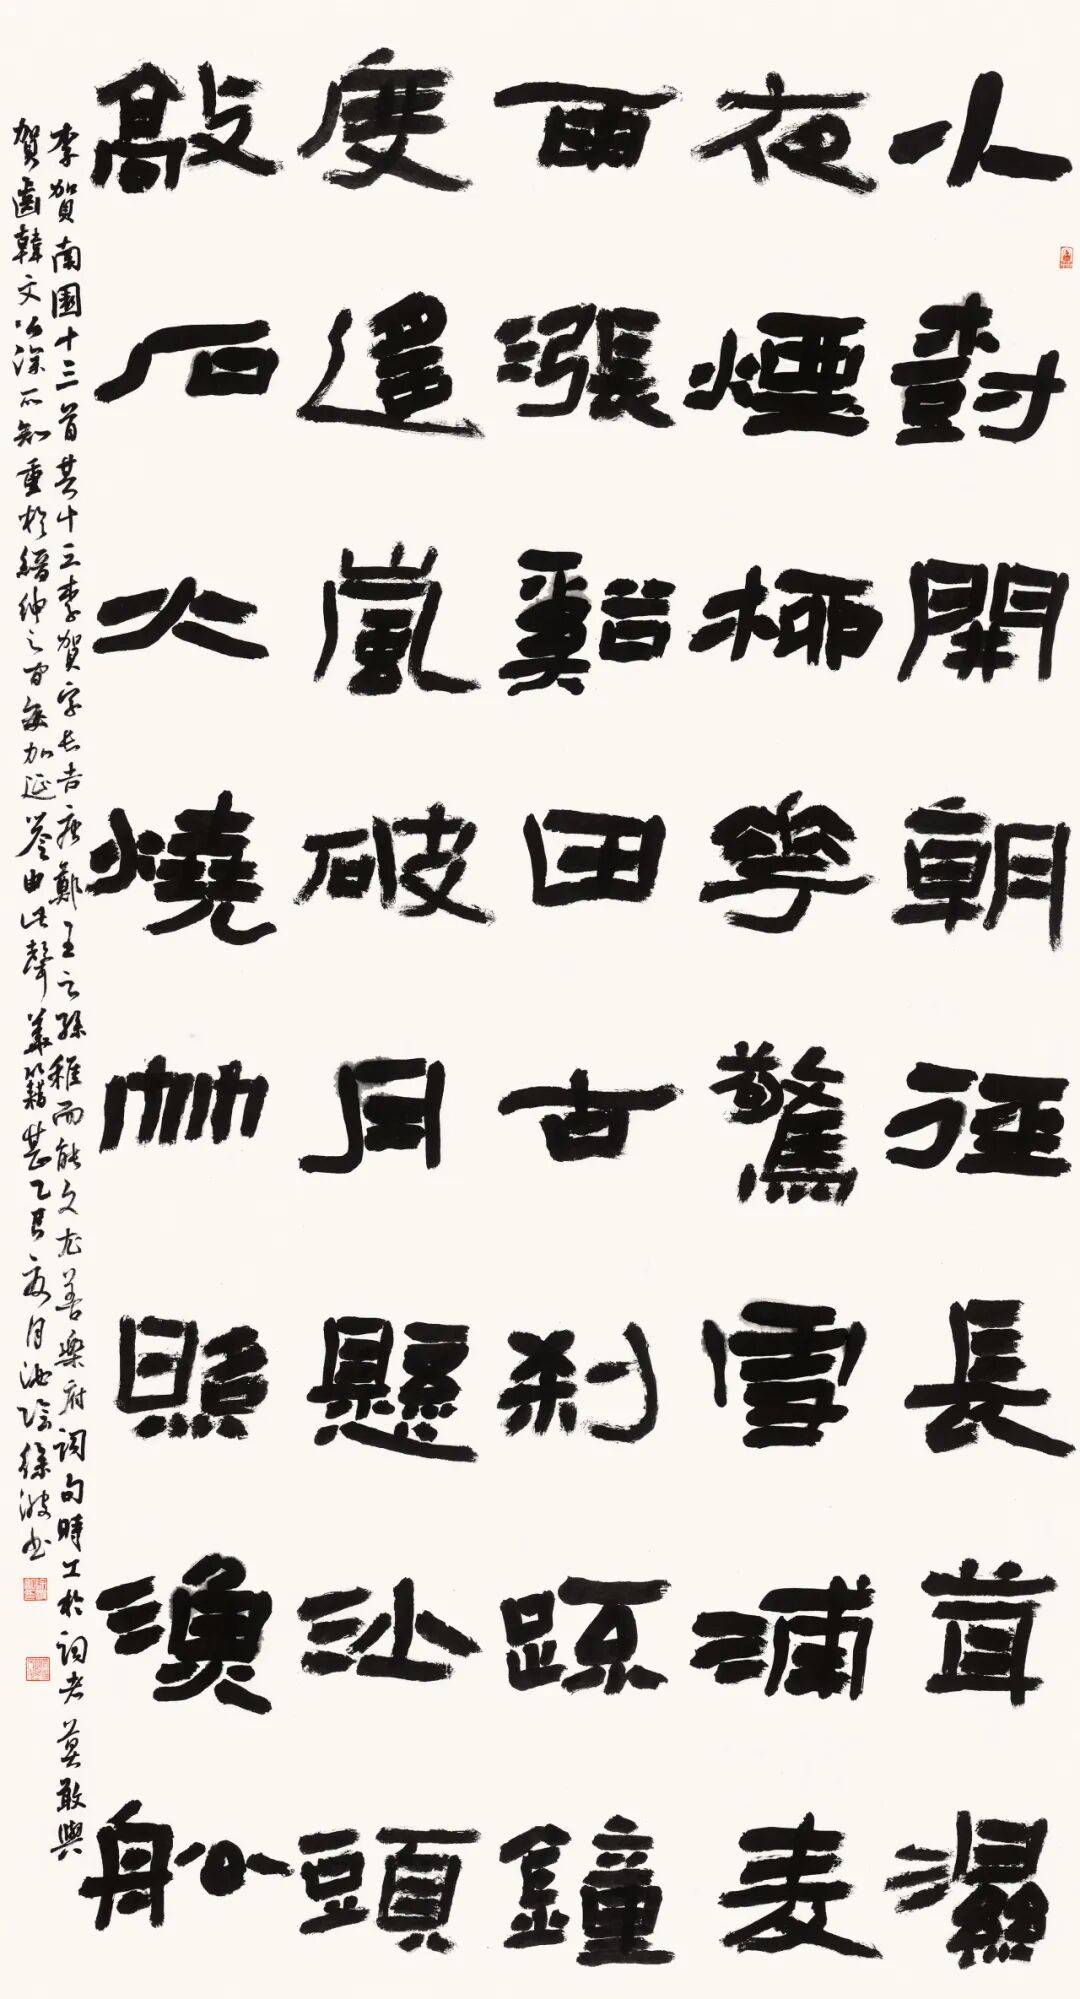 小樹開朝徑長茸濕
夜煙柳華驚雪浦麥
雨漲谿田古刹疏鐘
度遥嵐破月懸沙頭
敲石火燒竹照漁船
李賀南園十三首其十三李賀字長吉唐鄭王之孫稚而能文尤善樂府詞句時工於詞者莫敢與
賀齒韓文公深所知重於縉紳之間每加延譽由此聲華籍甚乙巳夏月陰徐波书